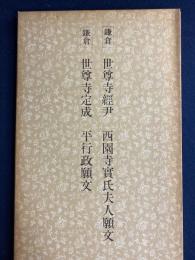 鎌倉 世尊寺經尹 西園寺實氏夫人願文
鎌倉 世尊寺定成 平行政願文